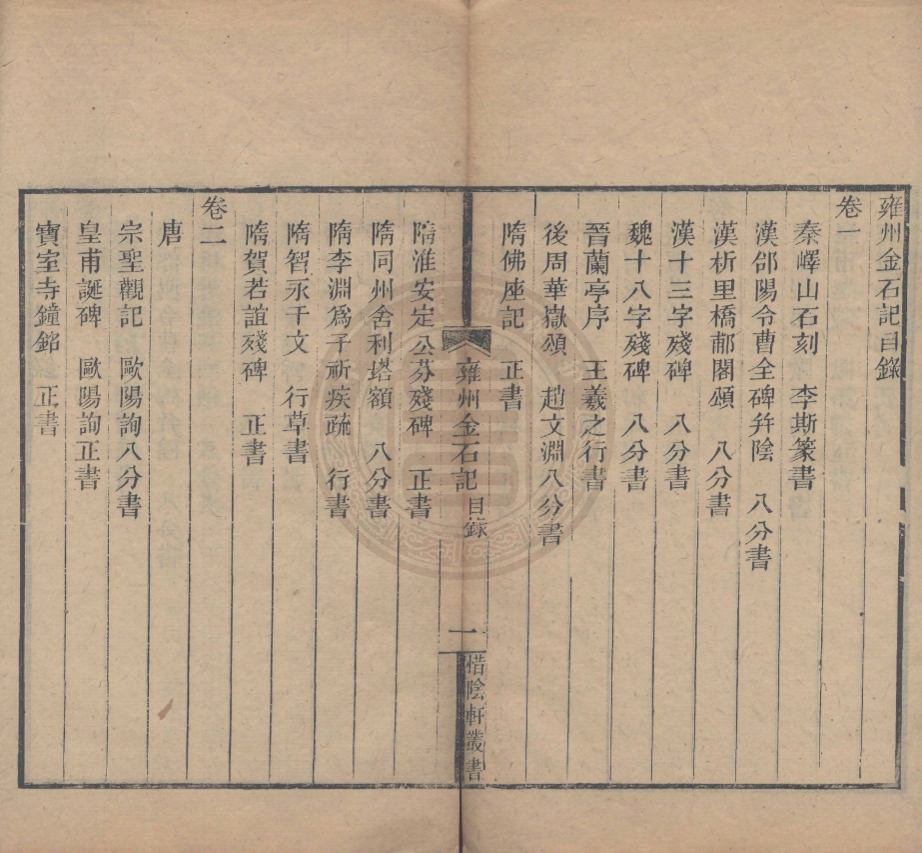 雍州金石記目錄
卷一
秦嶧山石刻　李斯篆書
漢郃陽令曹全碑并陰　八分書
漢析里橋郙閣頌　八分書
漢十三字殘碑　八分書
魏十八字殘碑　八分書
晉蘭亭序　王羲之行書
後周華嶽頌　趙文淵八分書
隋佛座記　正書
雍州金石記　目錄
一
惜陰軒叢書
隋淮安定公芬殘碑　正書
隋同州舍利塔額　八分書
隋李淵爲子祈疾疏　行書
隋智永千文　行草書
隋賀若誼殘碑　正書
卷二
唐
宗聖觀記　歐陽詢八分書
皇甫誕碑　歐陽詢正書
寶室寺鐘銘　正書